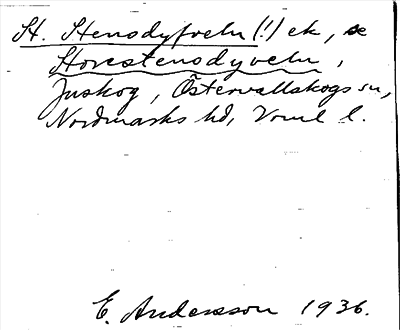 St. Stensdyfveln (!) ek, se
Storstensdyveln,
Juskog, Östervallskogs sn,
Nordmarks hd, Vrml l.
E. Andersson 1936.